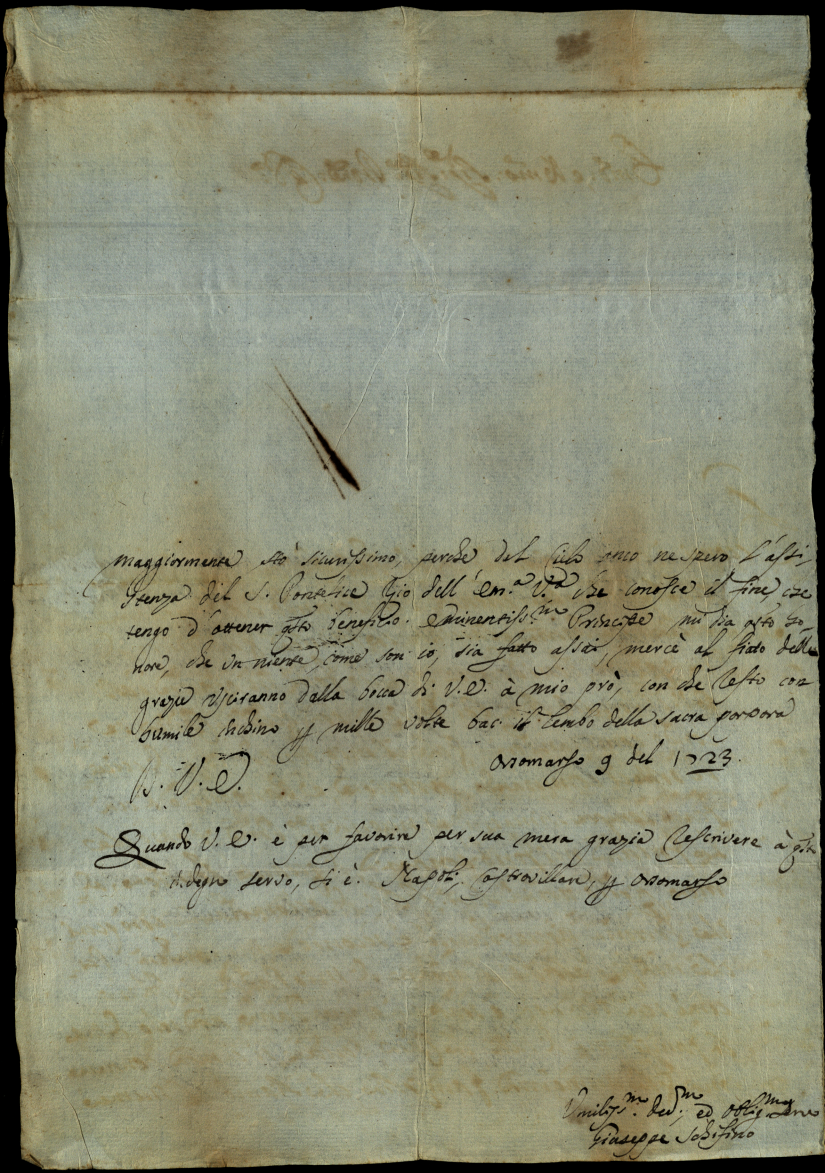 maggiormente stò sicurissimo, perche del Cielo anco ne spero l'assi,
stenza del S. Pontefice Gio dell' Em.a V.ra che conosce il fine, che
tengo d'ottener qsto beneficio. Eminentiss.mo Principe mi dia qsto ho-
nore, che un niente, come son io, sia fatto assai, mercè al fiato delle
grazie usciranno dalla bocca di V.E. à mio prò, con che resto con
humile inchino p mille volte bac. il lembo della sacra porpora
D. V. E.
Orsomarso 9 del 1723.
Quando V.E. è per favorire per sua mera grazia rescrivere à qsto
indegno servo, si è. Napoli, Castrovillare, p Orsomarso
Umiliss.mo dev.mo, ed oblig.mo servo
Giuseppe Schifino